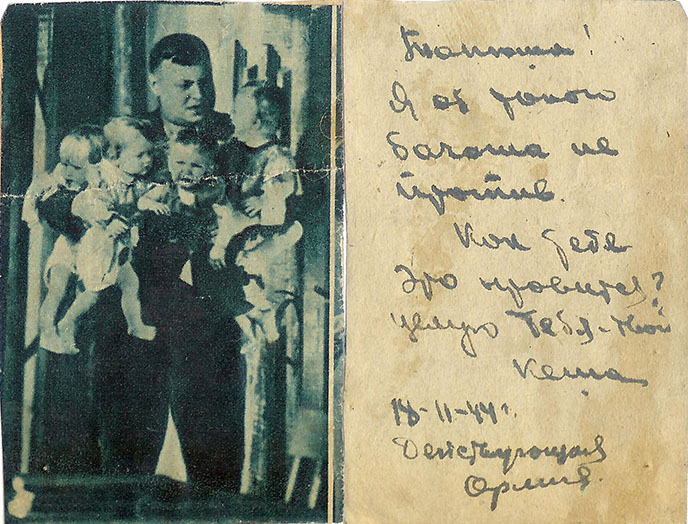 Танюша!
Я от такого
багажа не
против.
Как тебе
это нравится?
целую тебя-твой
Кеша
18-11-44 г.
Действующая
Армия.